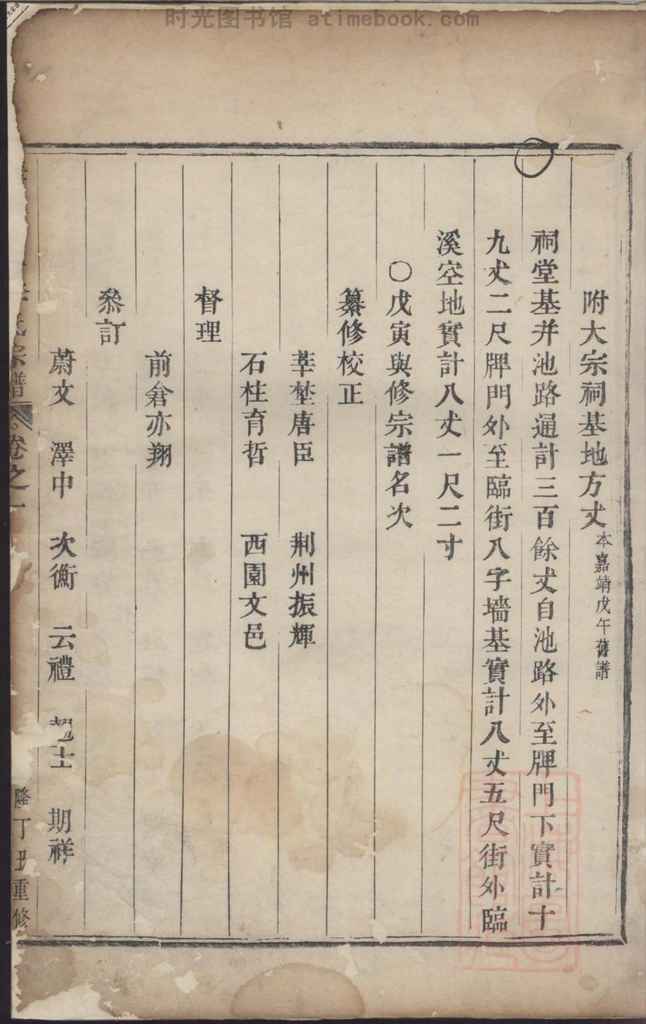 时光图书馆 atimebook.com
附大宗祠基地方丈本嘉靖戊午舊譜
祠堂基并池路通計三百餘丈自池路外至牌門下實計十
九丈二尺牌門外至臨街八字墻基實計八丈五尺街外臨
溪空地實計八丈一尺二寸
○戊寅與修宗譜名次
纂修校正
莘埜唐臣 荆州振輝
石柱育哲 西園文邑
督理
前倉亦翔
叅訂
蔚文 澤中 次衡 云禮 士 期祥
氏宗譜 卷之一 隆丁丑重修